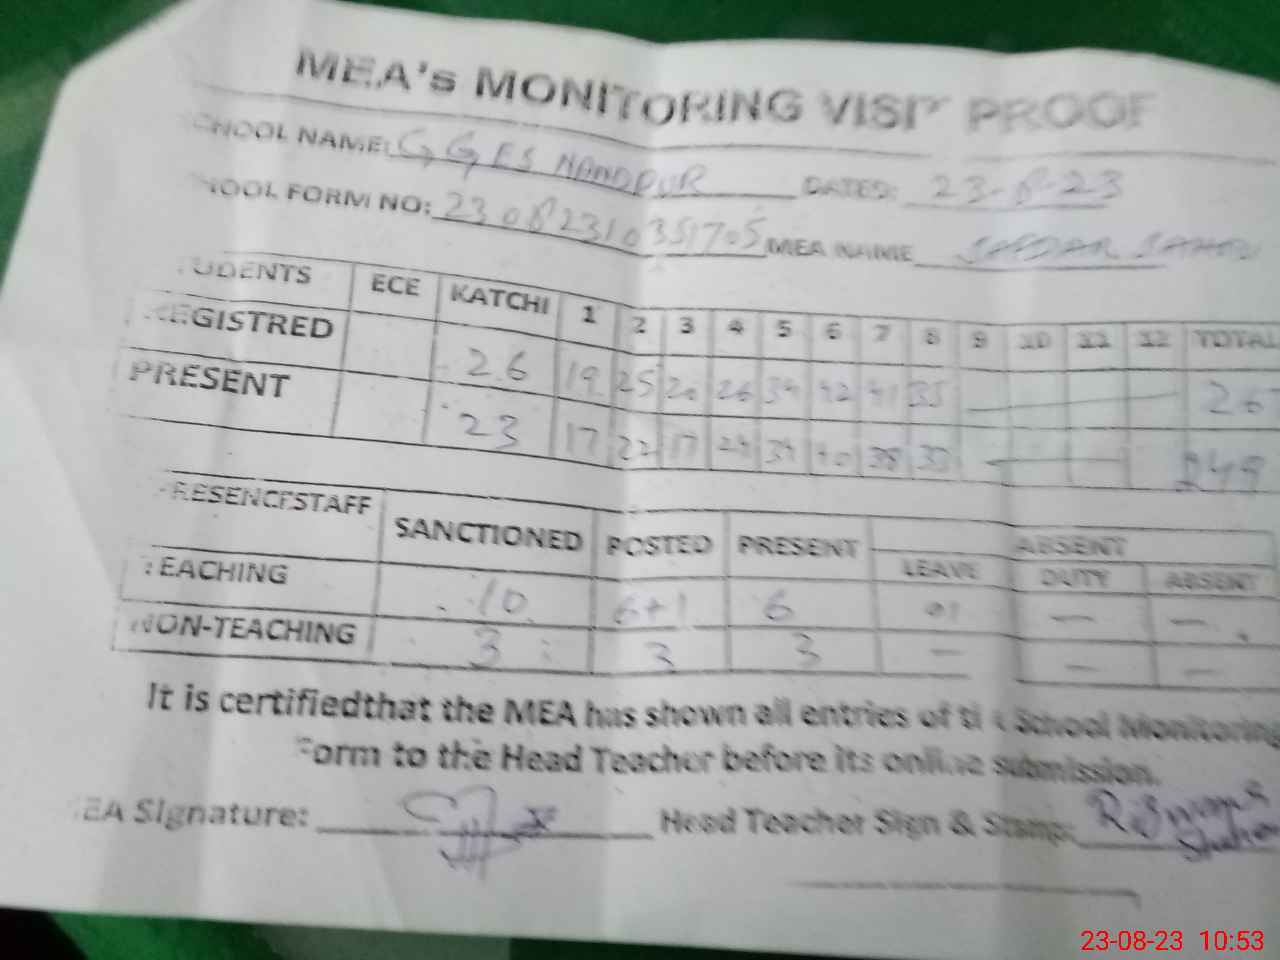 MEA's MONITORING VISIT PROOF
SCHOOL NAME: GGES NANDPUR DATED: 23-8-23
SCHOOL FORM NO: 23082310351705 MEA NAME SAFDAR
STUDENTS ECE KATCHI 1 2 3 4 5 6 7 8 9 10 11 12 TOTAL
REGISTRED 26 19 25 20 26 34 42 41 35 26
PRESENT 23 17 22 17 24 34 40 38 33 249
PRESENCESTAFF SANCTIONED POSTED PRESENT ABSENT
LEAVE DUTY ABSENT
TEACHING 10 6+1 6 01 — —
NON-TEACHING 3 3 3 — — —
It is certifiedthat the MEA has shown all entries of the School Monitoring
Form to the Head Teacher before its online submission.
MEA Signature: Head Teacher Sign & Stamp:
23-08-23 10:53